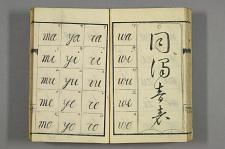 同濁音表
ma ya ra wa
mi yi ri wi
mu yu ru wu
me ye re we
mo yo ro wo